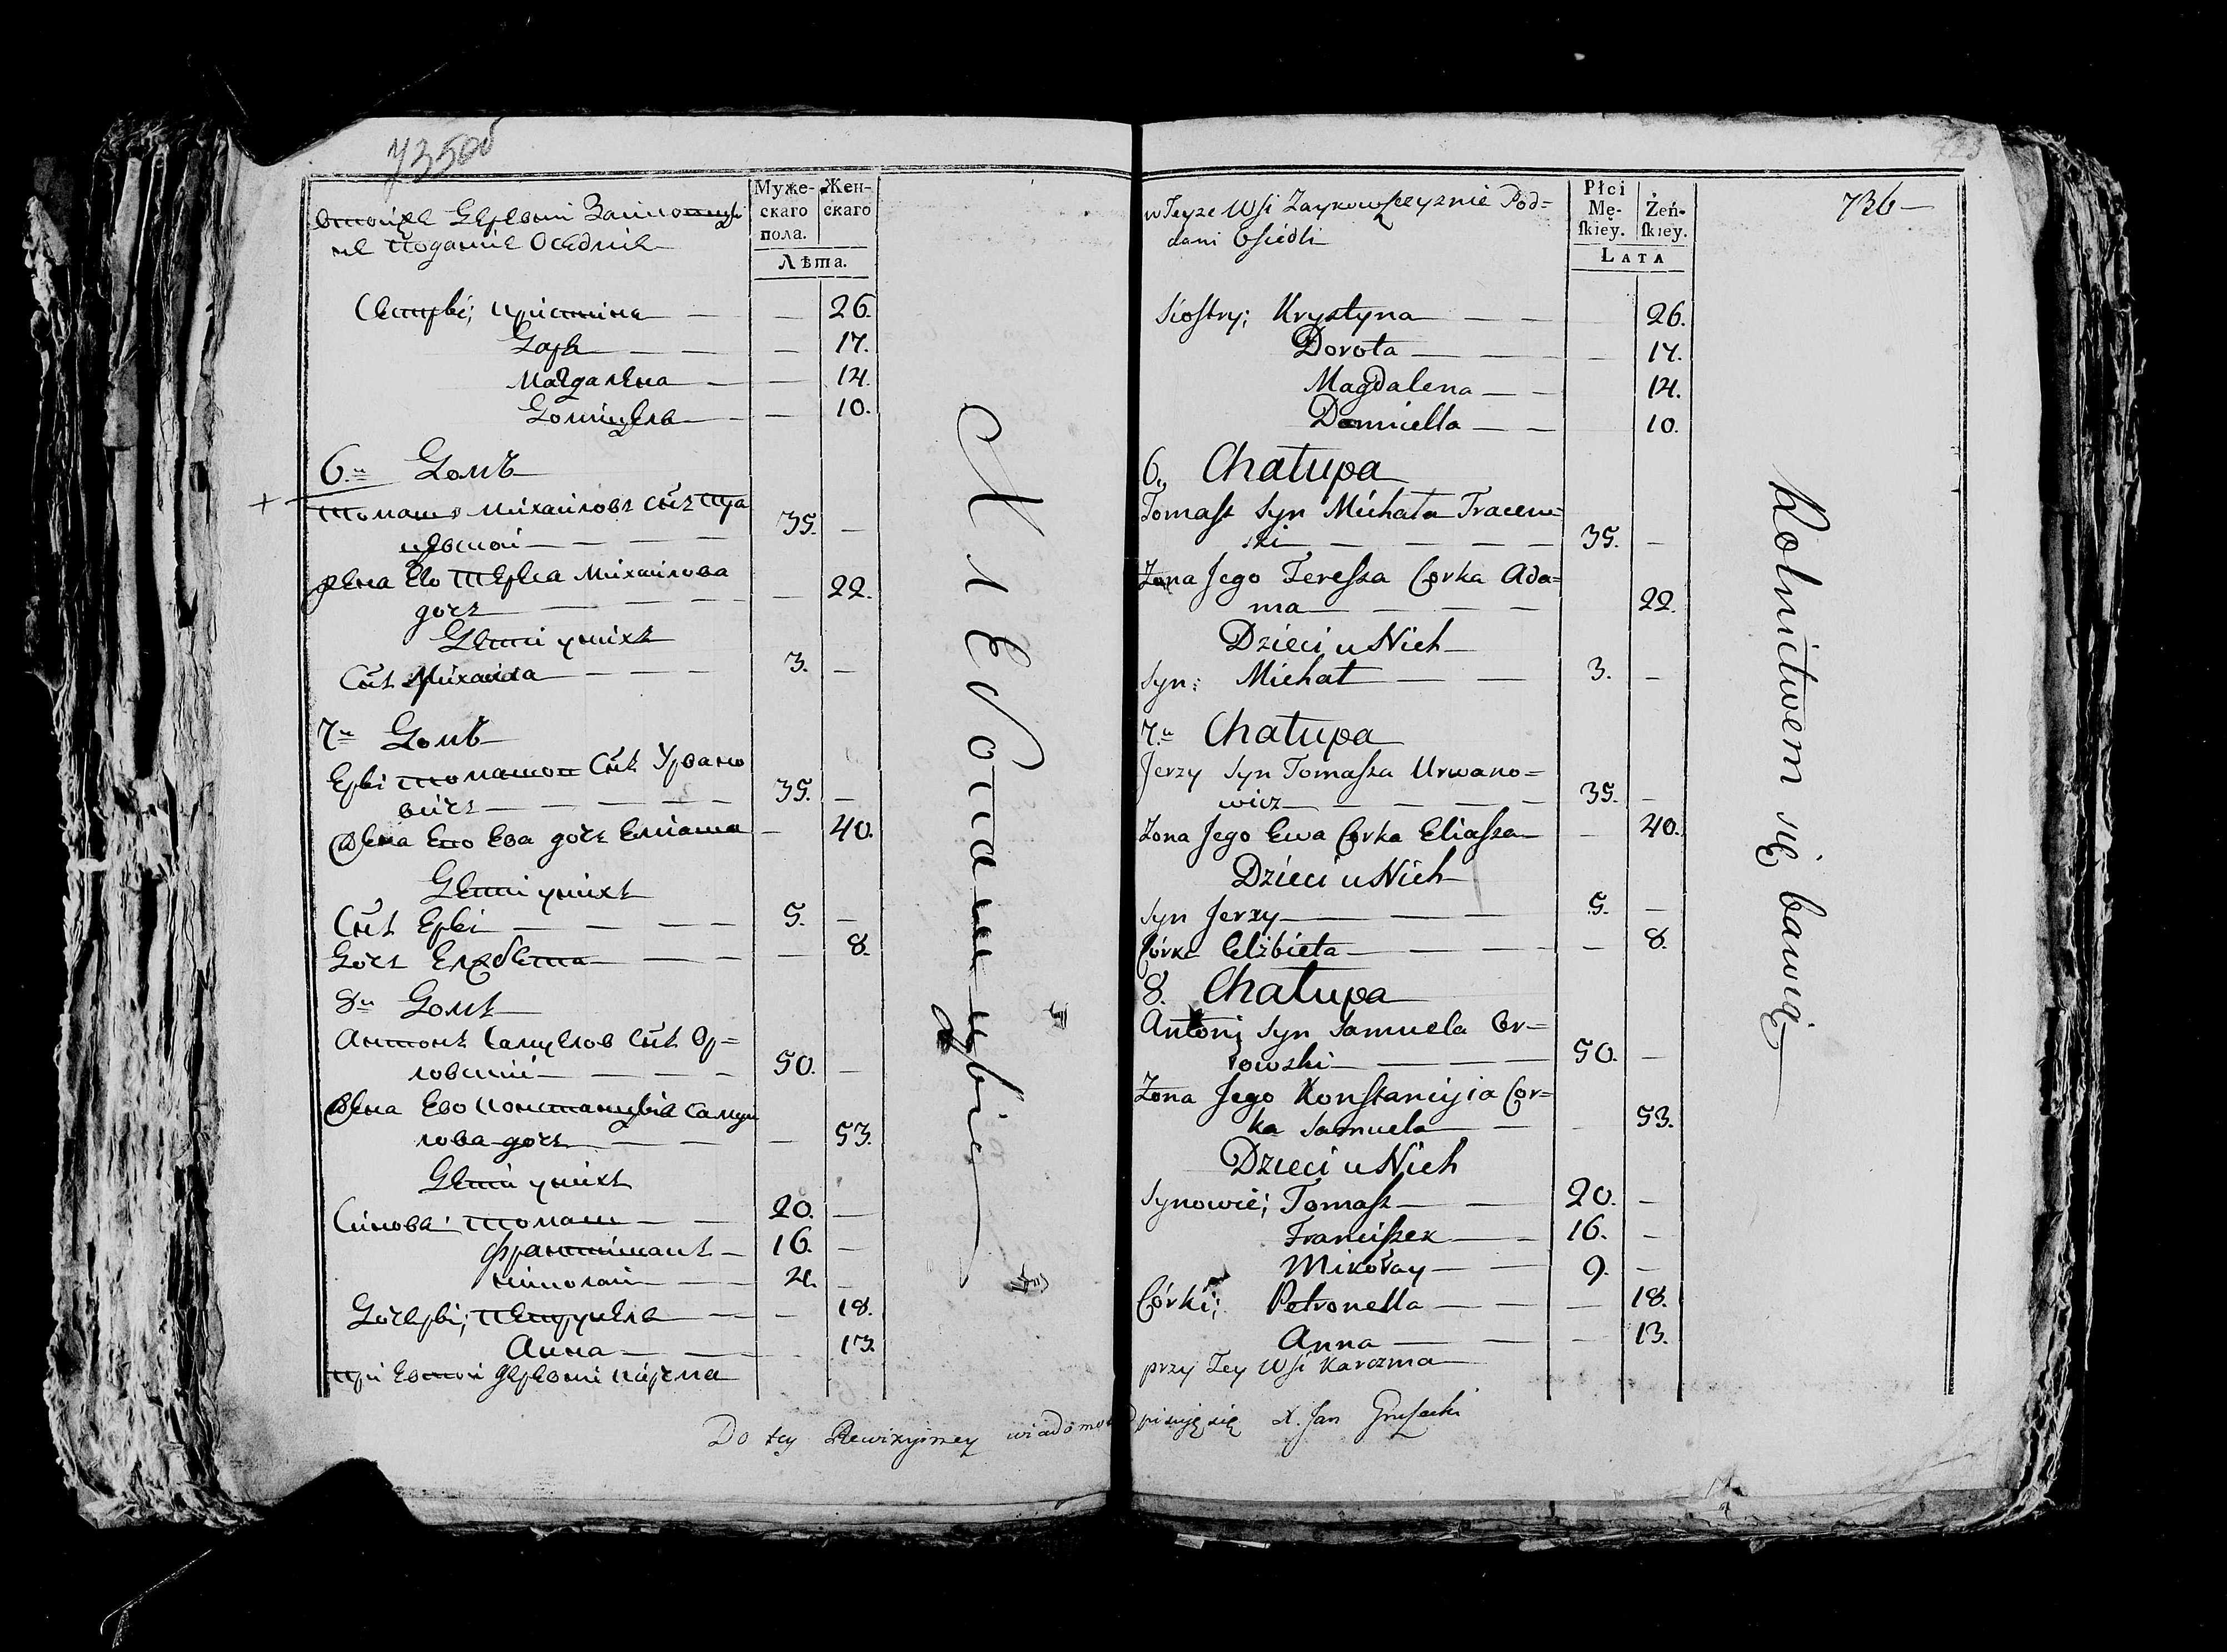 735об
Муже- Жен-
скаго скаго
пола.
Лѣта.
Сестры; Кристина — — 26.
Дорѣ — — — 17.
Магдалена — — 14.
Домицеля — — 10.
6.н Домъ
Томашъ Михаиловъ сынъ Тра
цевский — — — 35. —
Жена Ево Тереса Михаилова
дочь — — — — 22.
Дети у нихъ
Сынъ Михаила — — — 3. —
7н Домъ
Ержи Томашов Сынъ Урвано
вичъ — — — — 35. —
Жена Ево Ева дочь Елиаша — 40.
Дети у нихъ
Сынъ Ержи — — — 5. —
Дочь Елжбета — — — 8.
8н Домъ
Антонъ Самуелов Сынъ Ор=
ловский — — — 50. —
Жена Ево Констанцыя Самуи
лова дочь — — — 53.
Дети у нихъ
Синова: Томаш — — 20. —
Францишакъ — 16. —
Николай — — —
Дочеры; Петрунеля — — 18.
Анна — — — 13.
При Евтой Деревни Кирчма
736 —
w Teyze Wsi Zaykowszczyznie Pod=
dani Osiedli
Płci
Mę- Żeń-
skiey. skiey.
LATA
Siostry; Krystyna — — 26.
Dorota — — — 17.
Magdalena — — 14.
Domicella — — 10.
6., Chałupa
Tomasz Syn Michała Tracew=
ski — — — — — 35. —
Zona Jego Teressa Corka Ada=
ma — — — — 22.
Dzieci u Nich
Syn: Michał — — 3. —
7.н Chałupa
Jerzy Syn Tomasza Urwano=
wicz — — — — 35. —
Zona Jego Ewa Corka Eliasza — 40.
Dzieci u Nich
Syn Jerzy — — — 5. —
Córka Elżbieta — — — — 8.
8. Chałupa
Antoni Syn Samuela Or=
łowski — — — 50. —
Zona Jego Konstancyia Cor=
ka Samuela — — 53.
Dzieci u Nich
Synowie; Tomasz — — 20. —
Franciszek — — 16. —
Mikołay — — 9. —
Córki; Petronella — — — 18.
Anna — — — 13.
przy Tey Wsi Karczma
Rolnictwem się bawią
Do tey Rewizyiney wiadomo pisuję się X. Jan